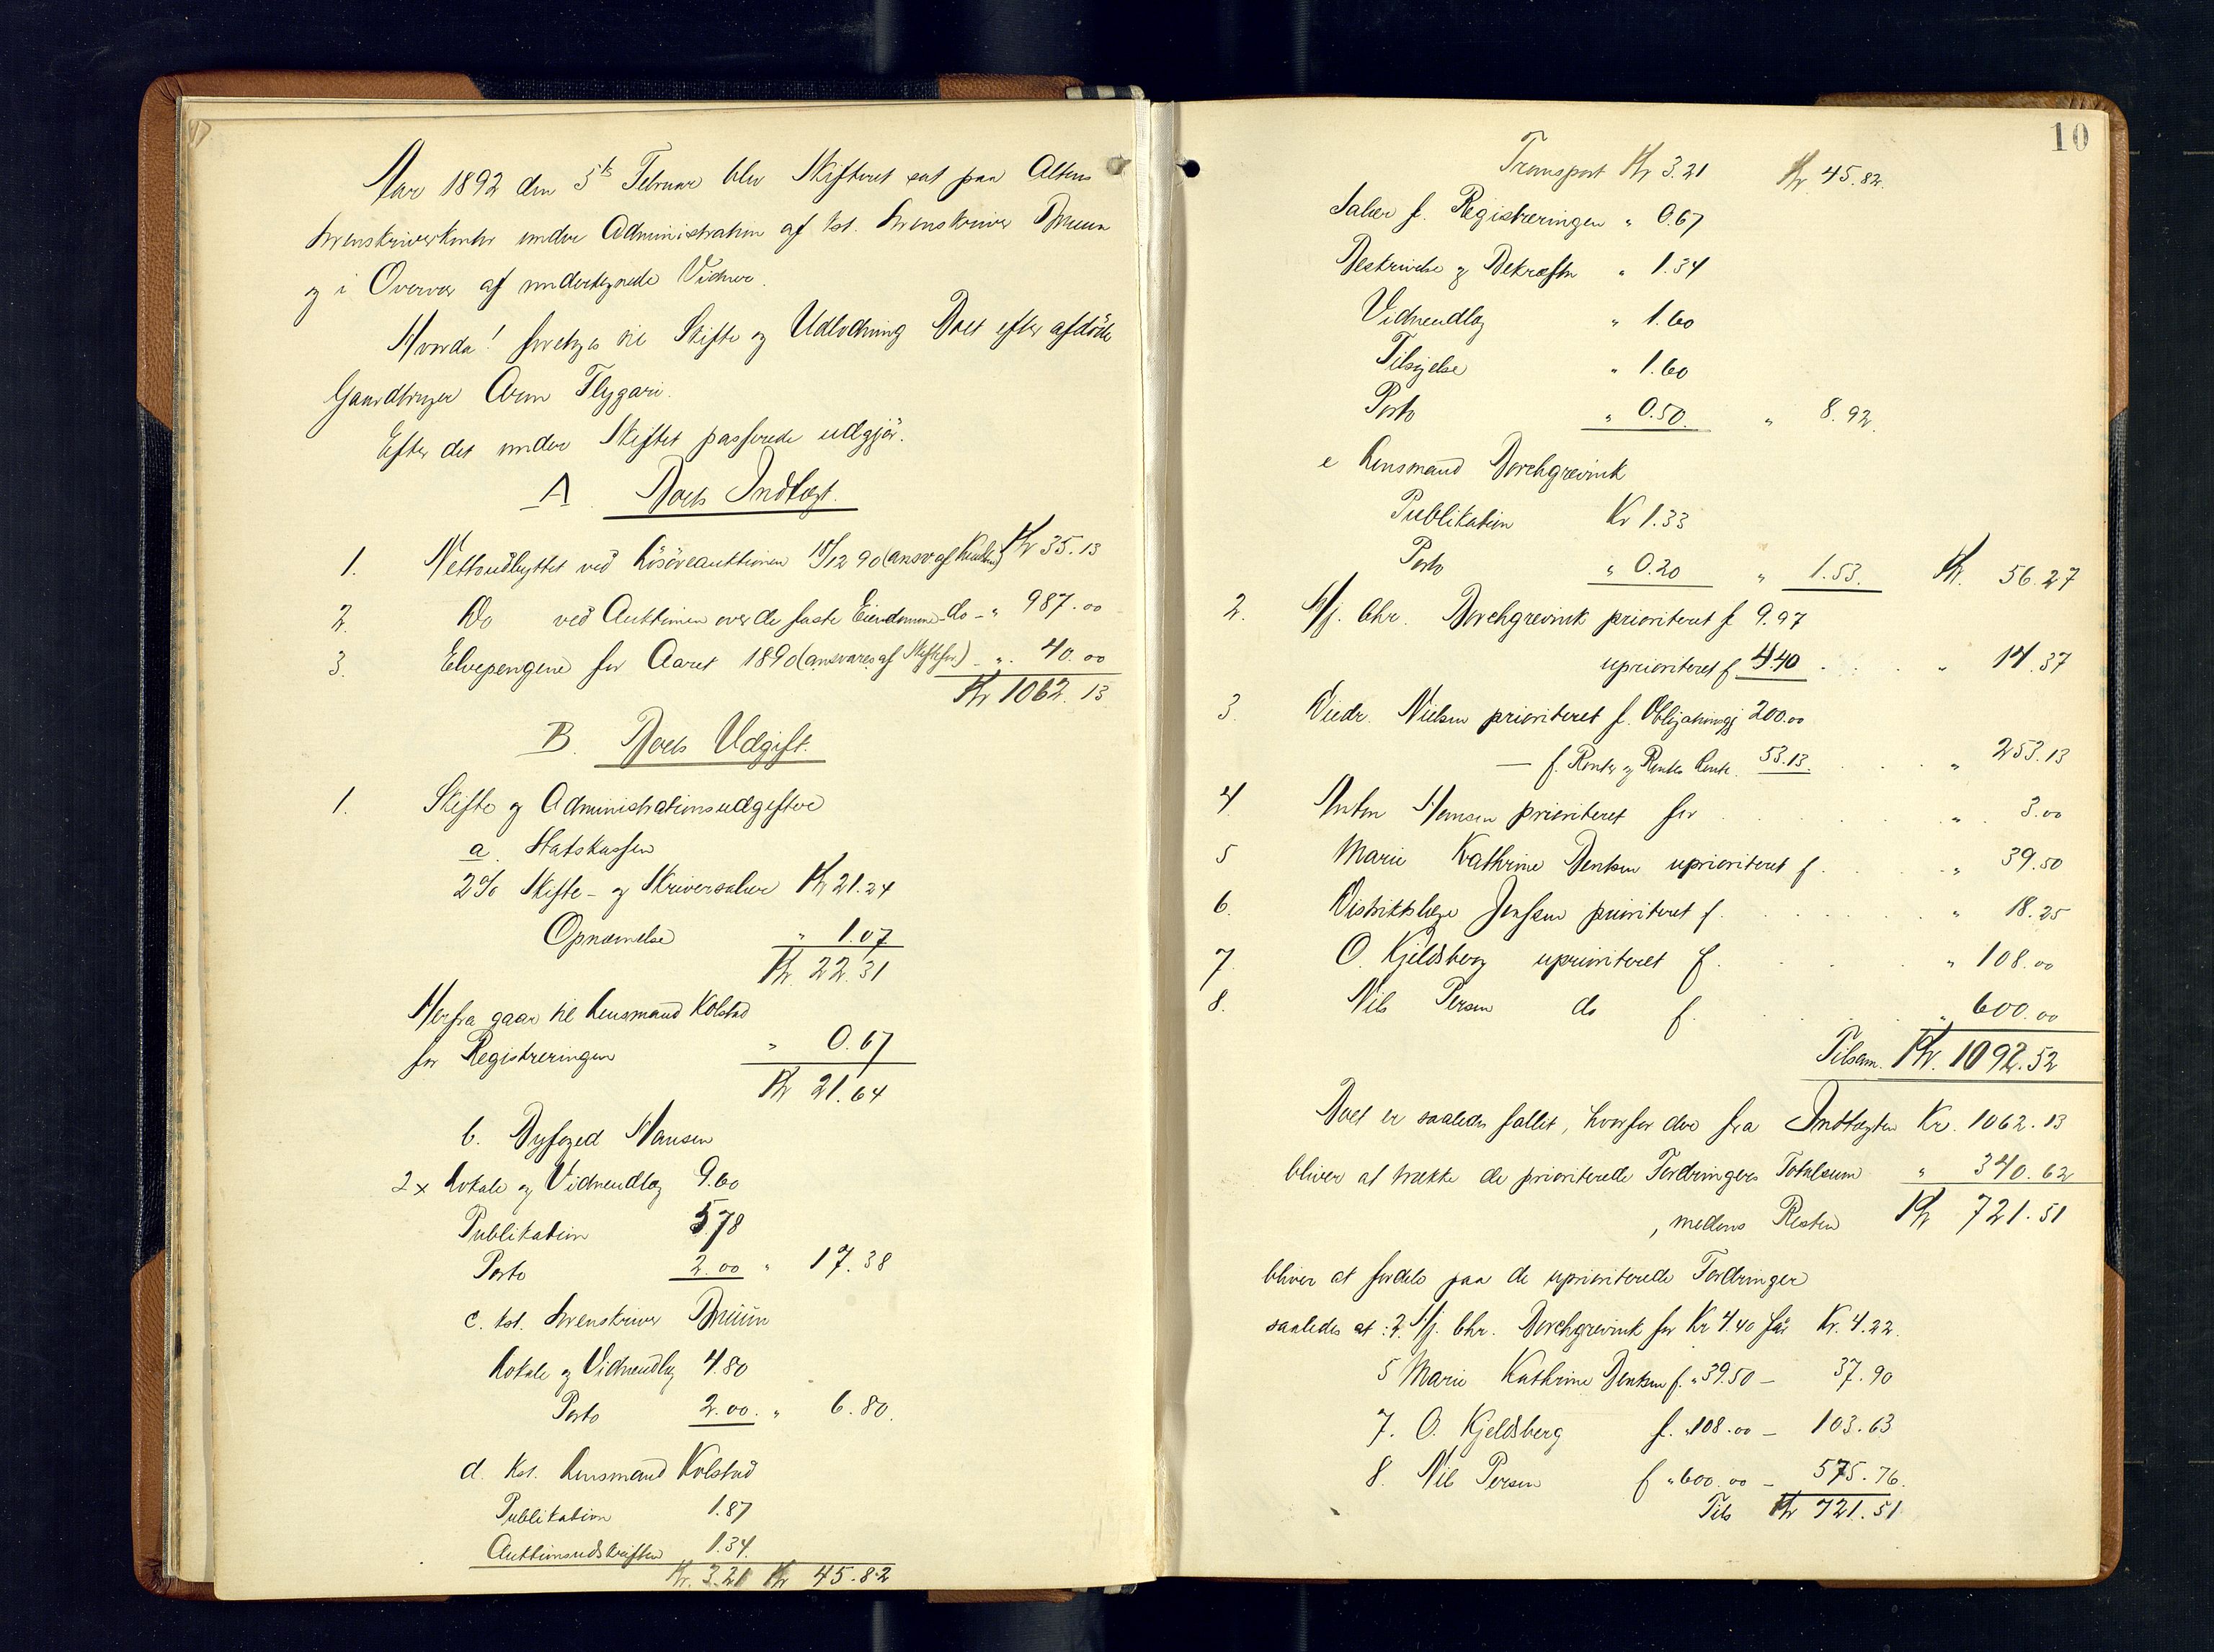 Aar 1892 den 5te Februar blev Skifteret sat paa Altens
Sorenskriverkontor under Administration af kst. Sorenskriver Bruun
og i Overvær af undertegnede Vidner.
Hvorda! foretoges til Skifte og Udlodning Boet efter afdöde
Gaardbruger Aron Flygari.
Efter det under Skiftet passerede udgjör.
A. Boets Indtægt.
1. Nettoudbyttet ved Lösöreauktionen 10/12 90 (ansv. af Kolstad) Kr 35.13
2. Do ved Auktionen over de faste Eiendomme - do - " 987.00
3. Elvepengene for Aaret 1890 (ansvares af Skiftefor.) - " 40.00
Kr 1062.13
B. Boets Udgift.
1. Skifte og Administrationsudgifter
a. Statskassen
2% Skifte- og Skriversalær Kr 21.24
Opnævnelse " 1.07
Kr. 22.31
Herfra gaar til Lensmand Kolstad
for Registreringen " 0.67
Kr 21.64
b. Byfoged Hansen
2 x Lokale og Vidneudlæg 9.60
Publikation 5.78
Porto 2.00 " 17.38
c. kst. Sorenskriver Bruun
Lokale og Vidneudlæg 4.80
Porto 2.00. " 6.80.
d. Kst. Lensmand Kolstad
Publikation 1.87
Auktionsudskriften 1.34.
Kr. 3.21 Kr 45.82
10
Transport Kr 3.21 Kr 45.82.
Salær f. Registreringen " 0.67
Beskrivelse og Bekræfteln " 1.34
Vidneudlæg " 1.60
Tilsigelse " 1.60
Porto " 0.50. " 8.92.
e Lensmand Borchgrevink
Publikation Kr 1.33
Porto " 0.20 " 1.53. Kr. 56.27
2. Hj. Chr. Borchgrevink prioriteret f 9.97
uprioriteret f 4.40 . . . " 14.37
3. Diedr. Nielsen prioriteret f. Obligationsgj 200.00
— f. Renter og Rentes Rente. 53.13. . . . " 253.13
4. Anton Hansen prioriteret for . . . " 3.00
5 Marie Kathrine Bentsen uprioriteret f. . . . " 39.50
6. Distriktslæge Jenssen prioriteret f. . . . " 18.25
7. O. Kjeldsberg uprioriteret f. . . . " 108.00
8. Nils Persen do f. . . . " 600.00
Tilsam. Kr. 1092.52
Boet er saaledes fallit, hvorfor der fra Indtægten Kr. 1062.13
bliver at trække de prioriterede Fordringers Totalsum " 340.62
, medens Resten Kr 721.51
bliver at fordele paa de uprioriterede Fordringer
saaledes at: 2. Hj. Chr. Borchgrevink for Kr 4.40 får Kr. 4.22.
5 Marie Kathrine Bentsen f. " 39.50 — 37.90
7. O. Kjeldsberg f. " 108.00 — 103.63
8. Nils Persen f " 600.00 — 575.76.
Tils Kr 721.51